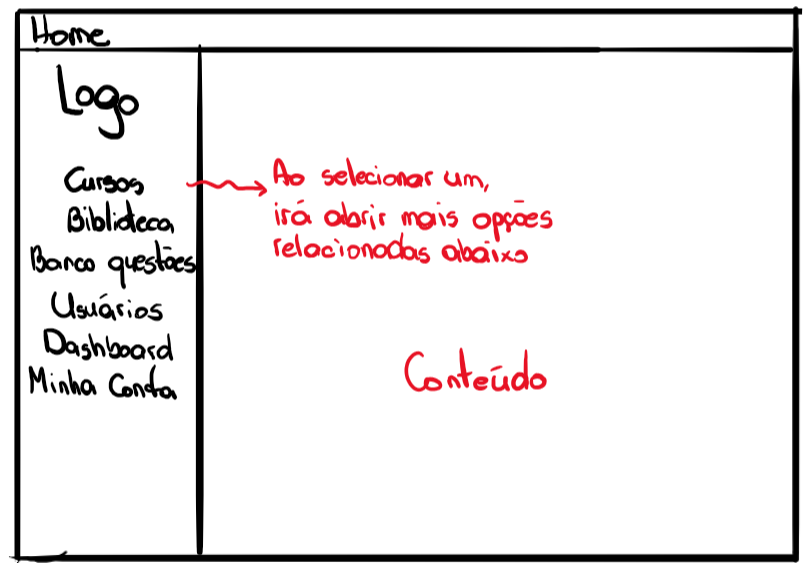 Home
Logo
Cursos
Biblioteca
Banco questões
Usuários
Dashboard
Minha Conta
Ao selecionar um,
irá abrir mais opções
relacionadas abaixo
Conteúdo